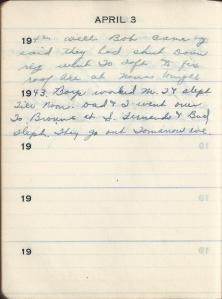 APRIL 3
19 well Bob came by
said they had shut down
rig went to Taft to fix
roof are at Moms tonight
1943. Boys worked M. T & slept
till Noon. Dad & I went over
To Browns at S. Fernando & Bud
slept. They go out Tomorrow eve
19
19
19